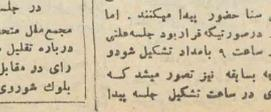 در جلسه
مجمع ملل متحد
درباره تقلیل
رای در مقابل
بلوک شوروی
سنا حضور پیدا میکنند . اما
درصورتیکه قرار بود جلسه علنی
ساعت ۹ بامداد تشکیل شود و
به سابقه نیز تصور میشد کـه
ی در ساعت تشکیل جلسه پیدا